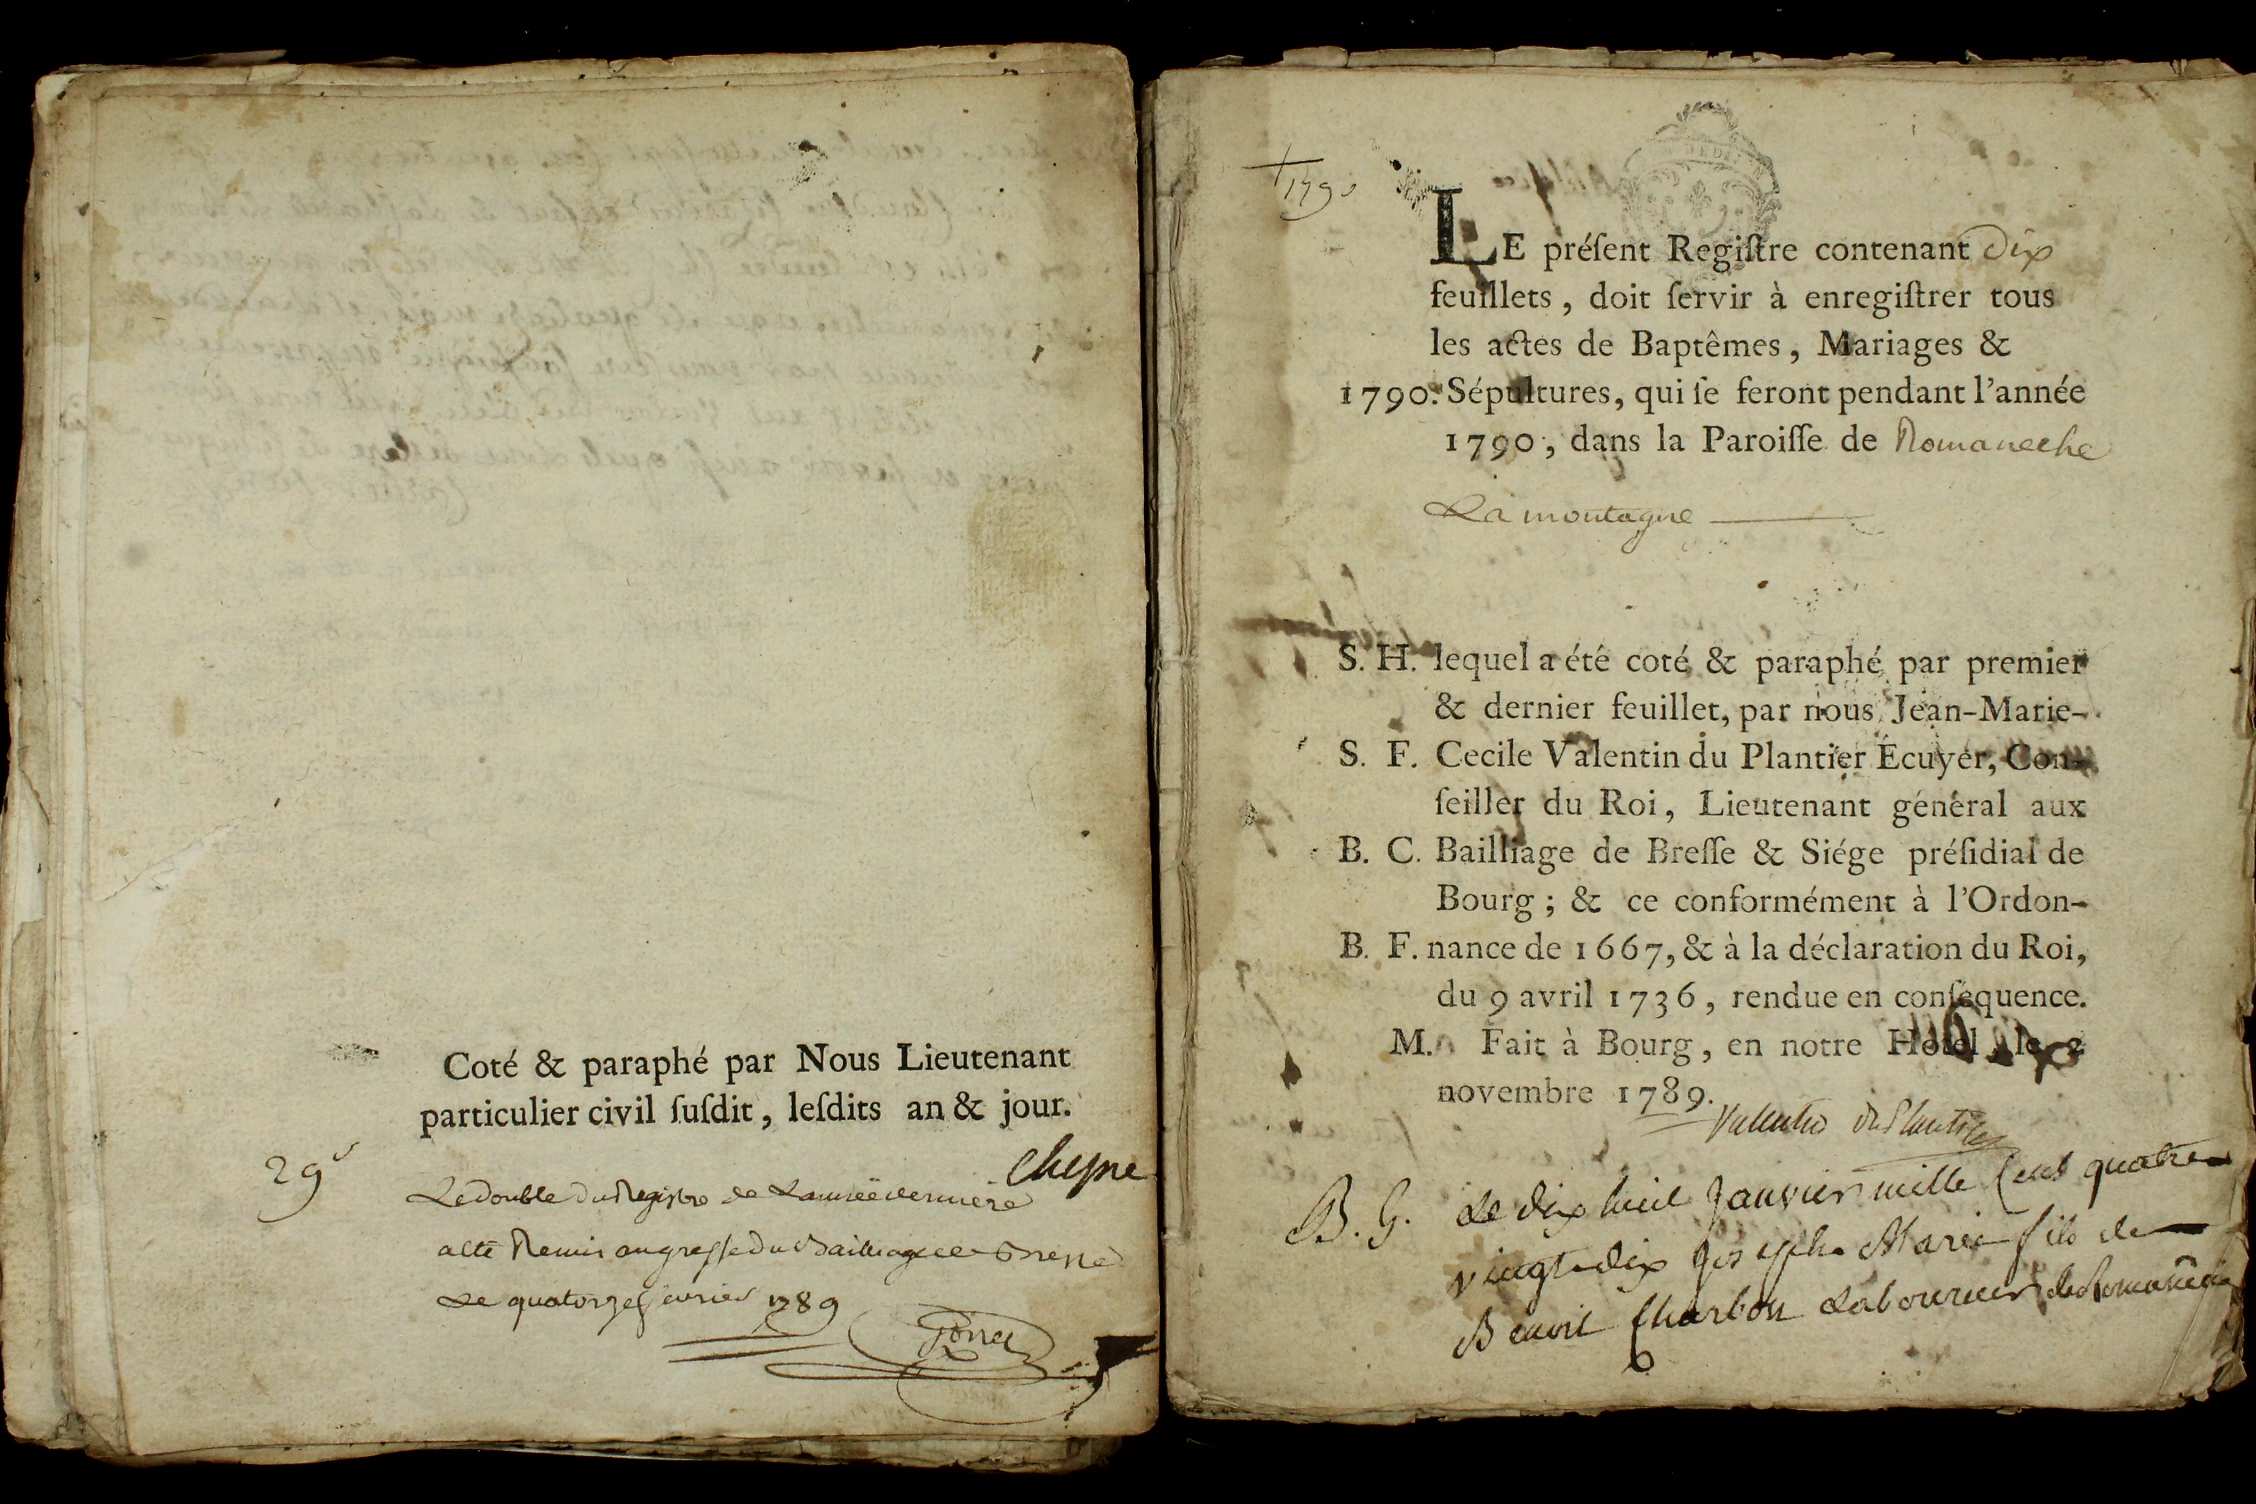 Coté & paraphé par Nous Lieutenant
particulier civil ſuſdit, leſdits an & jour.
29
Cheyne
Le double du Registre de L'année derniere
a été Remis au greffe du Bailliage de Bresse
Le quatorze fevrier 1789
1790
LE préſent Regiſtre contenant Dix
feuillets, doit ſervir à enregiſtrer tous
les actes de Baptêmes, Mariages &
1790. Sépultures, qui ſe feront pendant l'année
1790, dans la Paroiſſe de Romaneche
La montagne
S. H. lequel a été coté & paraphé par premier
& dernier feuillet, par nous Jean-Marie-
S. F. Cecile Valentin du Plantier Écuyer, Con-
ſeiller du Roi, Lieutenant général aux
B. C. Bailliage de Breſſe & Siége préſidial de
Bourg ; & ce conformément à l'Ordon-
B. F. nance de 1667, & à la déclaration du Roi,
du 9 avril 1736, rendue en conſéquence.
M. Fait à Bourg, en notre Hôtel, le 2
novembre 1789.
Valentin Duplantier
B. G. Le dix huit Janvier mille Cent quatre
vingt dix Joseph Marie fils de
Benoit Charbon Laboureur de Romaneche